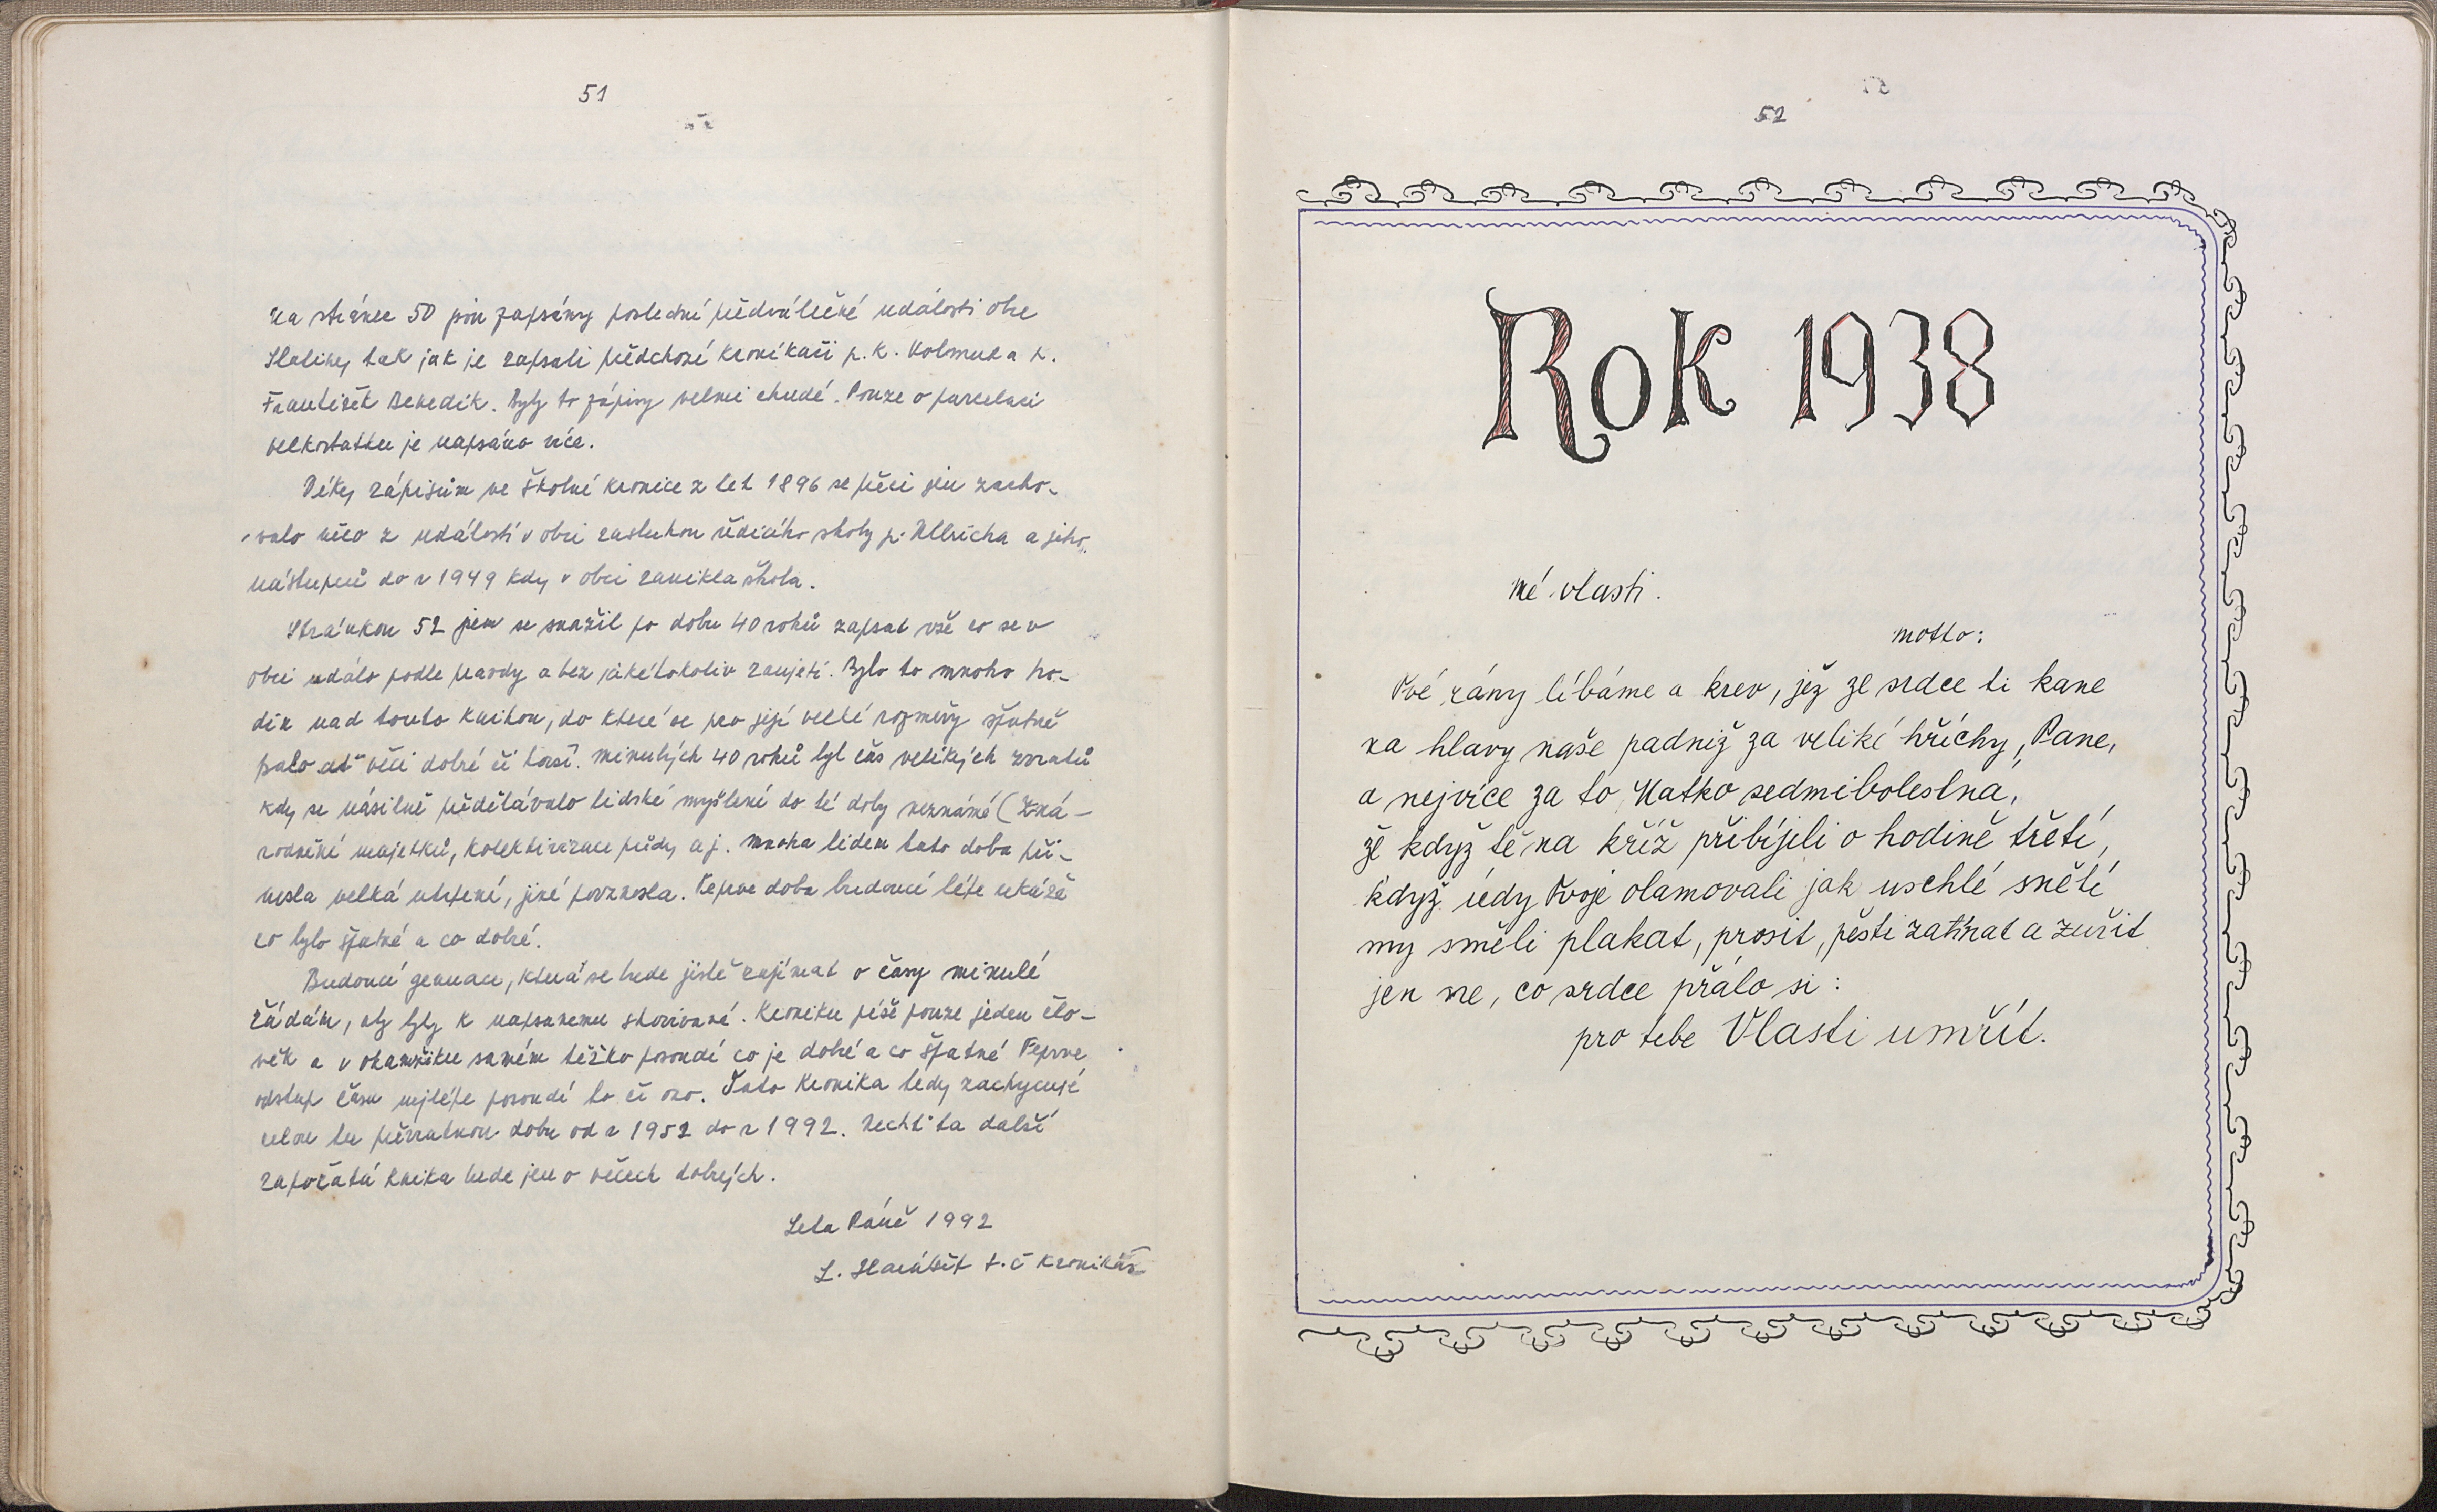 51
Na stránce 50 jsou zapsány poslední předválečné události obce
tak jak je zapsali předchozí kronikáři p. K. Kolmer a p.
František Benedik. Byly to zápisy velmi chudé. Pouze o parcelaci
velkostatku je napsáno více.
Díky zápisům ve školní kronice z let 1896 se přeci jen zacho-
valo něco z událostí v obci zásluhou řídícího školy p. Ullricha a jeho
nástupců do r 1949 kdy v obci zanikla škola.
Stránkou 52 jsem se snažil po dobu 40 roků zapsat vše co se v
obci událo podle pravdy a bez jakéhokoliv zaujetí. Bylo to mnoho ho-
din nad touto knihou, do které se pro její velké rozměry špatně
psalo ať věci dobré či horší. Minulých 40 roků byl čas velikých zvratů
kdy se násilně předělávalo lidské myšlení do té doby neznámé (Zná-
rodnění majetků, kolektivizace půdy aj. Mnoha lidem tato doba při-
nesla velká utrpení, jiné povznesla. Teprve doba budoucí lépe ukáže
co bylo špatné a co dobré.
Budoucí generace, která se bude jistě zajímat o časy minulé
žádám, aby byly k napsanému shovívavé. Kroniku píše pouze jeden člo-
věk a v okamžiku samém těžko posoudí co je dobré a co špatné Teprve
odstup času nejlépe posoudí to či ono. Tato kronika tedy zachycuje
celou tu převratnou dobu od r 1952 do r 1992. Nechť ta další
započatá kniha bude jen o věcech dobrých.
Leta Páně 1992
L. t.č kronikář
52
Rok 1938
mé vlasti.
motto:
Tvé rány líbáme a krev, jež ze srdce ti kane
na hlavy naše padniž za veliké hříchy, Pane,
a nejvíce za to, Matko sedmibolestná,
že když tě na kříž přibíjeli o hodině třetí,
když údy Tvoje olamovali jak uschlé snětí
my směli plakat, prosit, pěsti zatínat a zuřit
jen ne, co srdce přálo si:
pro tebe Vlasti umřít.